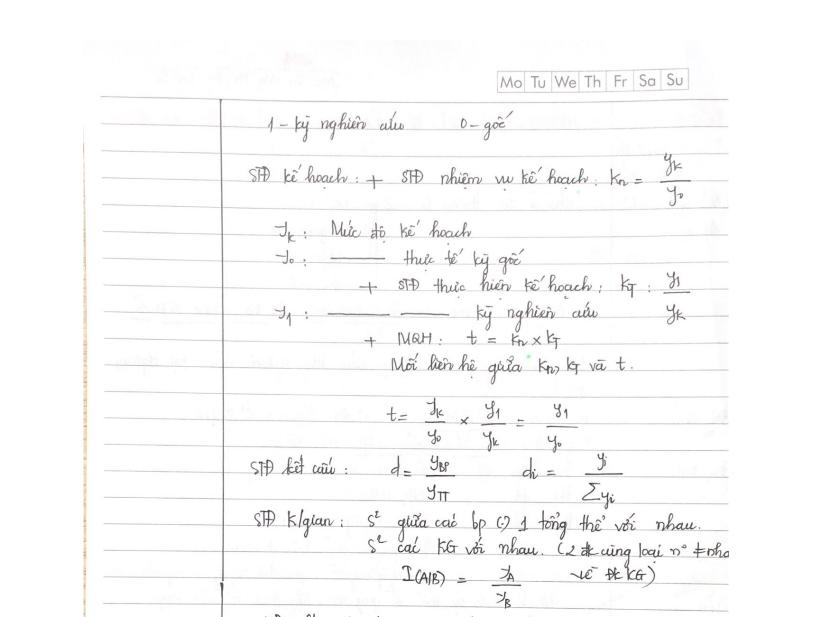 Mo Tu We Th Fr Sa Su
1 - kỳ nghiên cứu 0 - gốc
STĐ kế hoạch : + STĐ nhiệm vụ kế hoạch : Kn = yk / y0
yk : Mức độ kế hoạch
y0 : —— thực tế kỳ gốc
+ STĐ thực hiện kế hoạch : KT : y1 / yk
y1 : —— —— kỳ nghiên cứu
+ MQH : t = Kn x KT
Mối liên hệ giữa Kn, KT và t.
t = yk / y0 x y1 / yk = y1 / y0
STĐ kết cấu : d = yBP / yTT di = yi / Σyi
STĐ K/gian : S² giữa các bp (.) 1 tổng thể với nhau.
S² các KG với nhau. (2 ht cùng loại n° ≠ nha
I(A/B) = yA / yB về ĐK KG)